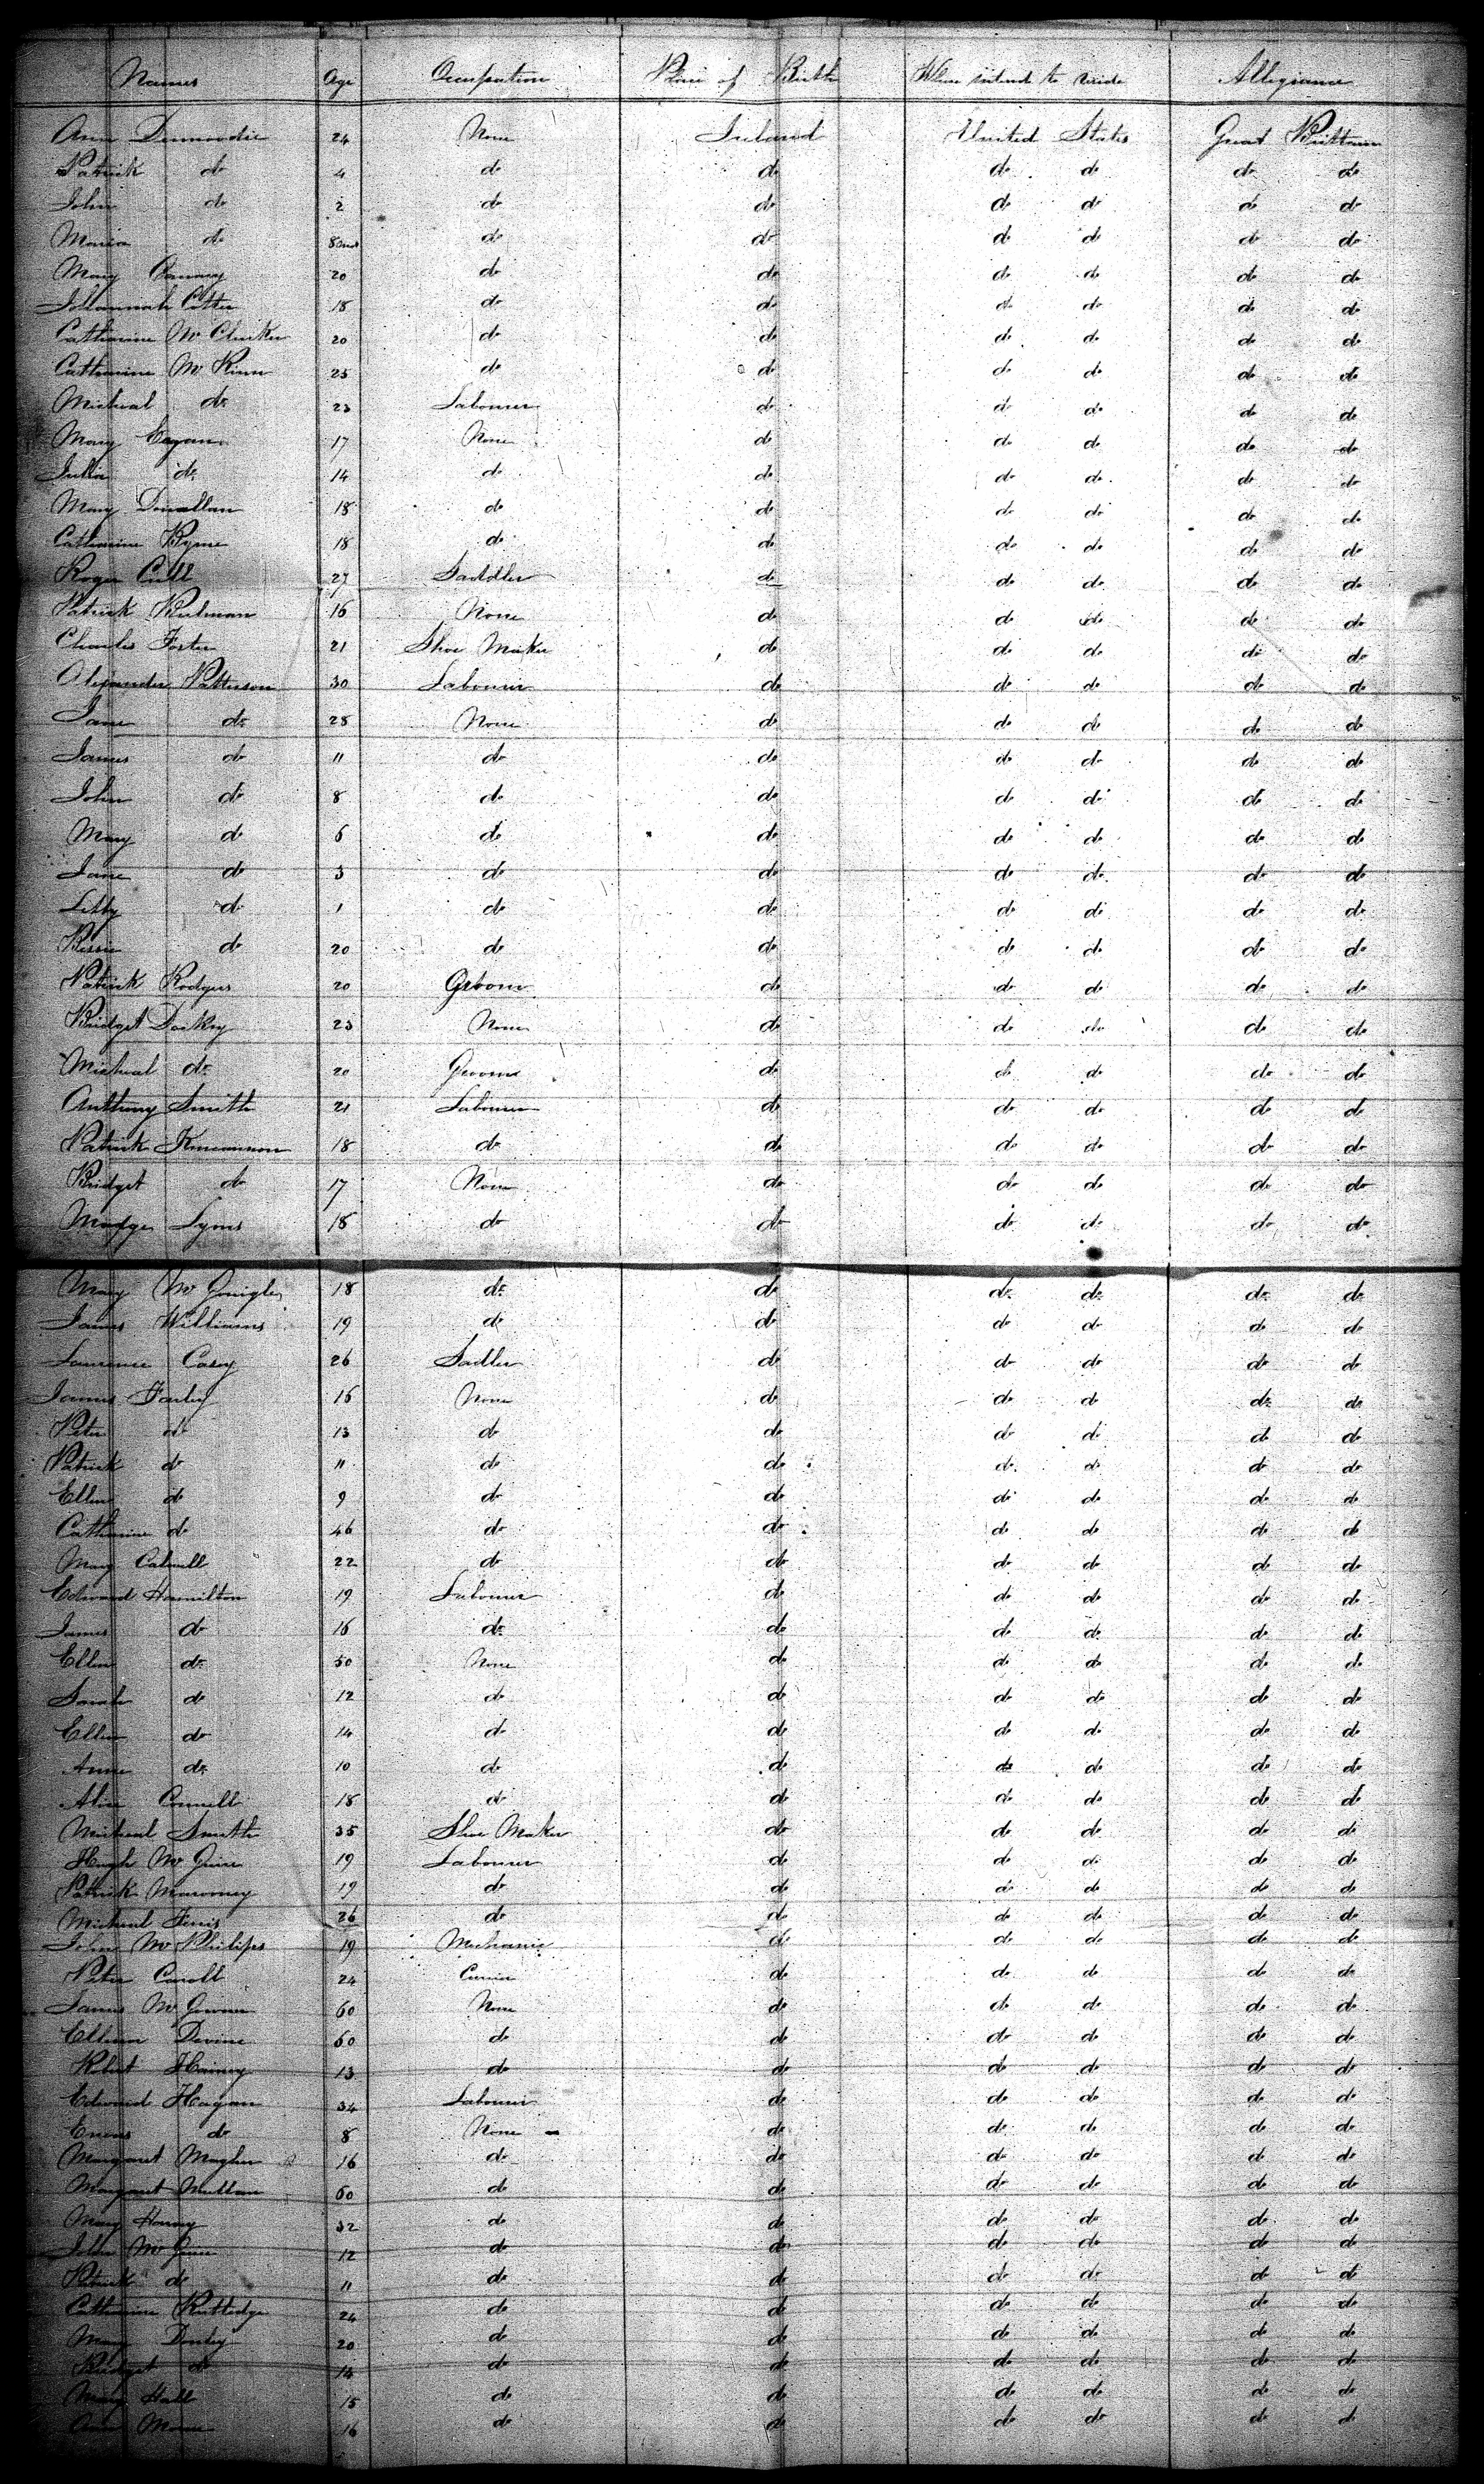 Names Age Occupation Place of Birth Where intend to reside Allegiance
Ann 24 None Ireland United States Great Brittain
Patrick do 4 do do do do do do
John do 2 do do do do do do
Maria do 8 mos do do do do do do
Mary 20 do do do do do do
Johannah Cotter 18 do do do do do do
Catharine Mc 20 do do do do do do
Catharine Mc Kinn 25 do do do do do do
Micheal do 23 Labourer do do do do do
Mary Eagan 17 None do do do do do
Julia do 14 do do do do do do
Mary Donallan 18 do do do do do do
Catharine Byrne 18 do do do do do do
Roger Cull 27 Saddler do do do do do
Patrick 16 None do do do do do
Charles Foster 21 Shoe Maker do do do do do
Alexander Patterson 30 Labourer do do do do do
Jane do 28 None do do do do do
James do 11 do do do do do do
John do 8 do do do do do do
Mary do 6 do do do do do do
Jane do 3 do do do do do do
Letty do 1 do do do do do do
Bessie do 20 do do do do do do
Patrick Rodgers 20 Groom do do do do do
Bridget 23 None do do do do do
Micheal do 20 Groom do do do do do
Anthony Smith 21 Labourer do do do do do
Patrick 18 do do do do do do
Bridget do 17 None do do do do do
Madge Lyms 18 do do do do do do
Mary Mc Gonigle 18 do do do do do do
James Williams 19 do do do do do do
Laurence Casey 26 Sadler do do do do do
James Farley 15 None do do do do do
Peter do 13 do do do do do do
Patrick do 11 do do do do do do
Ellen do 9 do do do do do do
Catharine do 46 do do do do do do
Mary Calwell 22 do do do do do do
Edward Hamilton 19 Labourer do do do do do
James do 16 do do do do do do
Ellen do 50 None do do do do do
Sarah do 12 do do do do do do
Ellen do 14 do do do do do do
Anne do 10 do do do do do do
Alice Connell 18 do do do do do do
Micheal Smith 35 Shoe Maker do do do do do
Hugh Mc Guire 19 Labourer do do do do do
Patrick Marooney 19 do do do do do do
Micheal Ferris 26 do do do do do do
John Mc Philips 19 Mechanic do do do do do
Peter Caroll 24 Currier do do do do do
James Mc 60 None do do do do do
Devine 60 do do do do do do
Robert 13 do do do do do do
Edward Hagan 34 Labourer do do do do do
do 8 None do do do do do
Margaret Magher 16 do do do do do do
Margaret Mullan 60 do do do do do do
Mary 32 do do do do do do
John Mc Guire 12 do do do do do do
Patrick do 11 do do do do do do
Catharine Ruttledge 24 do do do do do do
Mary 20 do do do do do do
Bridget do 14 do do do do do do
Mary Hall 15 do do do do do do
Ann 16 do do do do do do